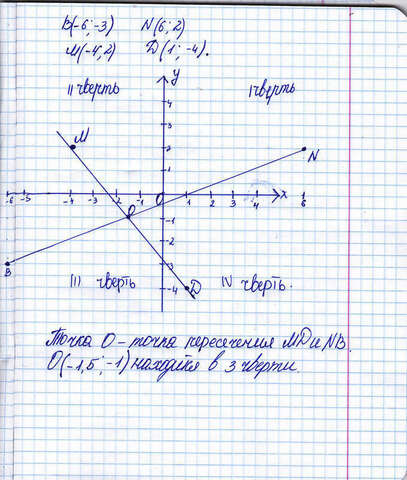 B(-6;-3) N(6;2)
M(-4;2) D(1;-4).
II четверть I четверть
y
4
3
2
1
M
N
-6 -5 -4 -3 -2 -1 0 1 2 3 4 6 x
O
-1
-2
-3
-4
B
D
III четверть IV четверть.
Точка O - точка пересечения MD и NB.
O(-1,5;-1) находится в 3 четверти.